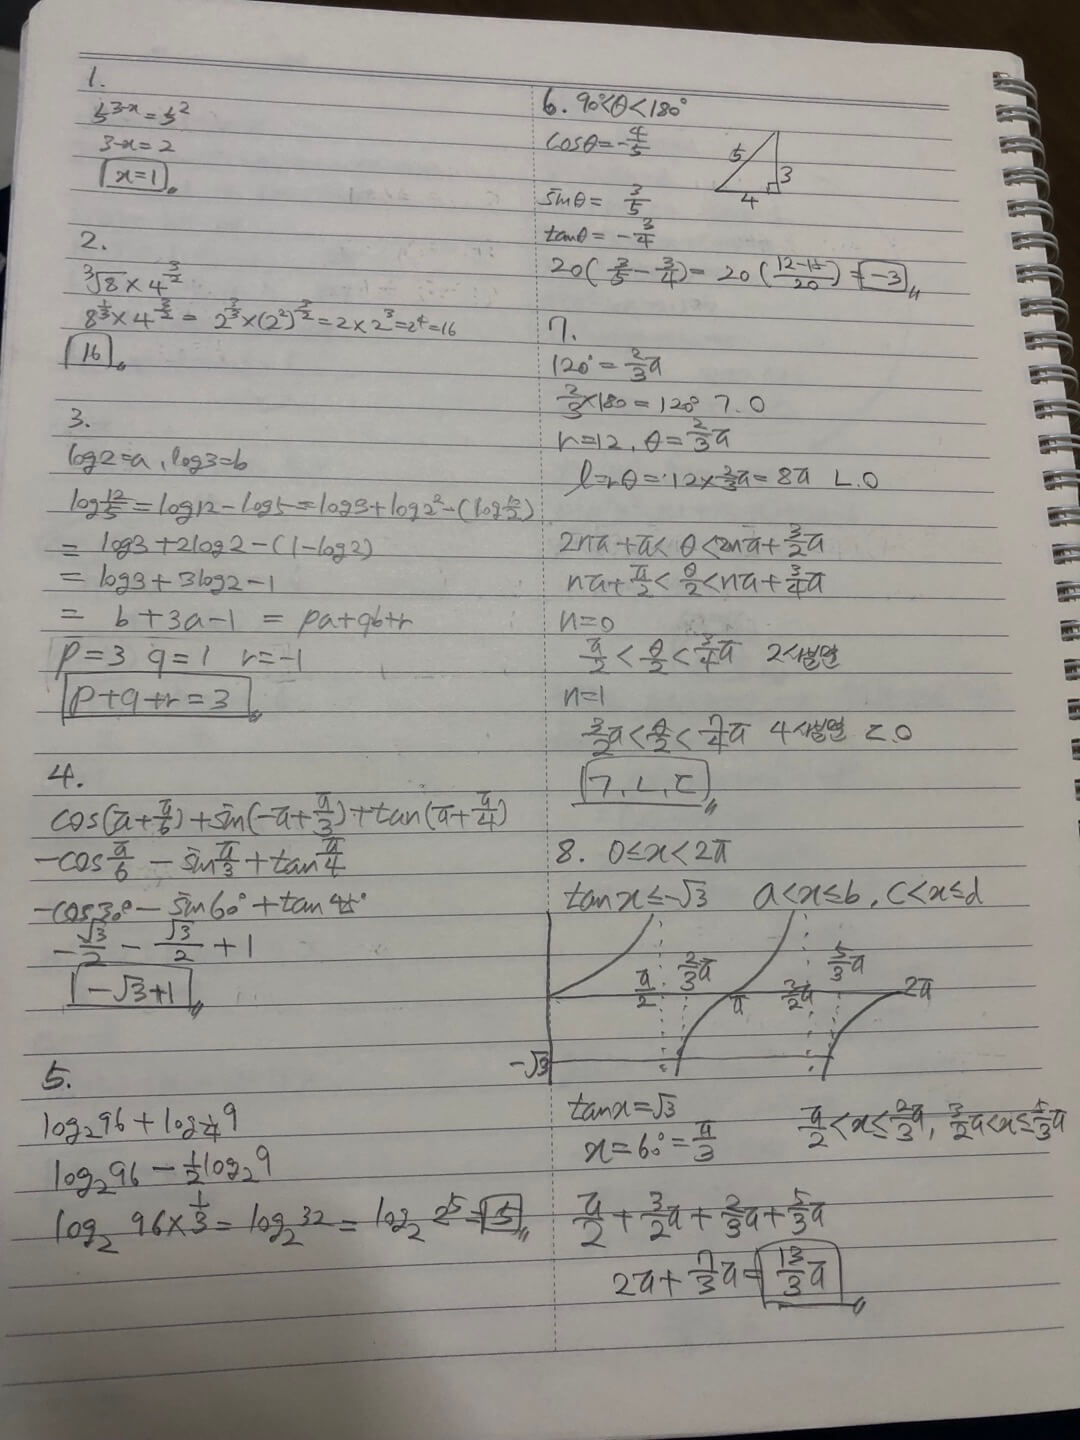 1.
5^{3-x} = 5^2
3-x = 2
x=1
2.
∛8 × 4^{3/2}
8^{1/3} × 4^{3/2} = 2^{3/3} × (2^2)^{3/2} = 2 × 2^3 = 2^4 = 16
16
3.
log2=a, log3=b
log 12/5 = log12 - log5 = log3 + log2^2 - (log 10/2)
= log3 + 2log2 - (1-log2)
= log3 + 3log2 - 1
= b + 3a - 1 = pa+qb+r
p=3 q=1 r=-1
p+q+r=3
4.
cos(π+π/6) + sin(-π+π/3) + tan(π+π/4)
-cos π/6 - sin π/3 + tan π/4
-cos30° - sin60° + tan45°
-√3/2 - √3/2 + 1
-√3+1
5.
log_2 96 + log_{1/4} 9
log_2 96 - 1/2 log_2 9
log_2 96×1/3 = log_2 32 = log_2 2^5 = 5
6. 90°<θ<180°
cosθ = -4/5
5 3 4
sinθ = 3/5
tanθ = -3/4
20(3/5 - 3/4) = 20(12-15/20) = -3
7.
120° = 2/3π
2/3×180 = 120° ㄱ.O
r=12, θ=2/3π
l=rθ = 12×2/3π = 8π ㄴ.O
2nπ+π < θ < 2nπ+3/2π
nπ+π/2 < θ/2 < nπ+3/4π
n=0
π/2 < θ/2 < 3/4π 2사분면
n=1
3/2π < θ/2 < 7/4π 4사분면 ㄷ.O
ㄱ,ㄴ,ㄷ
8. 0≤x<2π
tanx≤-√3 a<x≤b, c<x≤d
π/2 2/3π π 3/2π 5/3π 2π
-√3
tanx=√3
x=60°=π/3
π/2<x≤2/3π, 3/2π<x≤5/3π
π/2 + 3/2π + 2/3π + 5/3π
2π + 7/3π = 13/3π